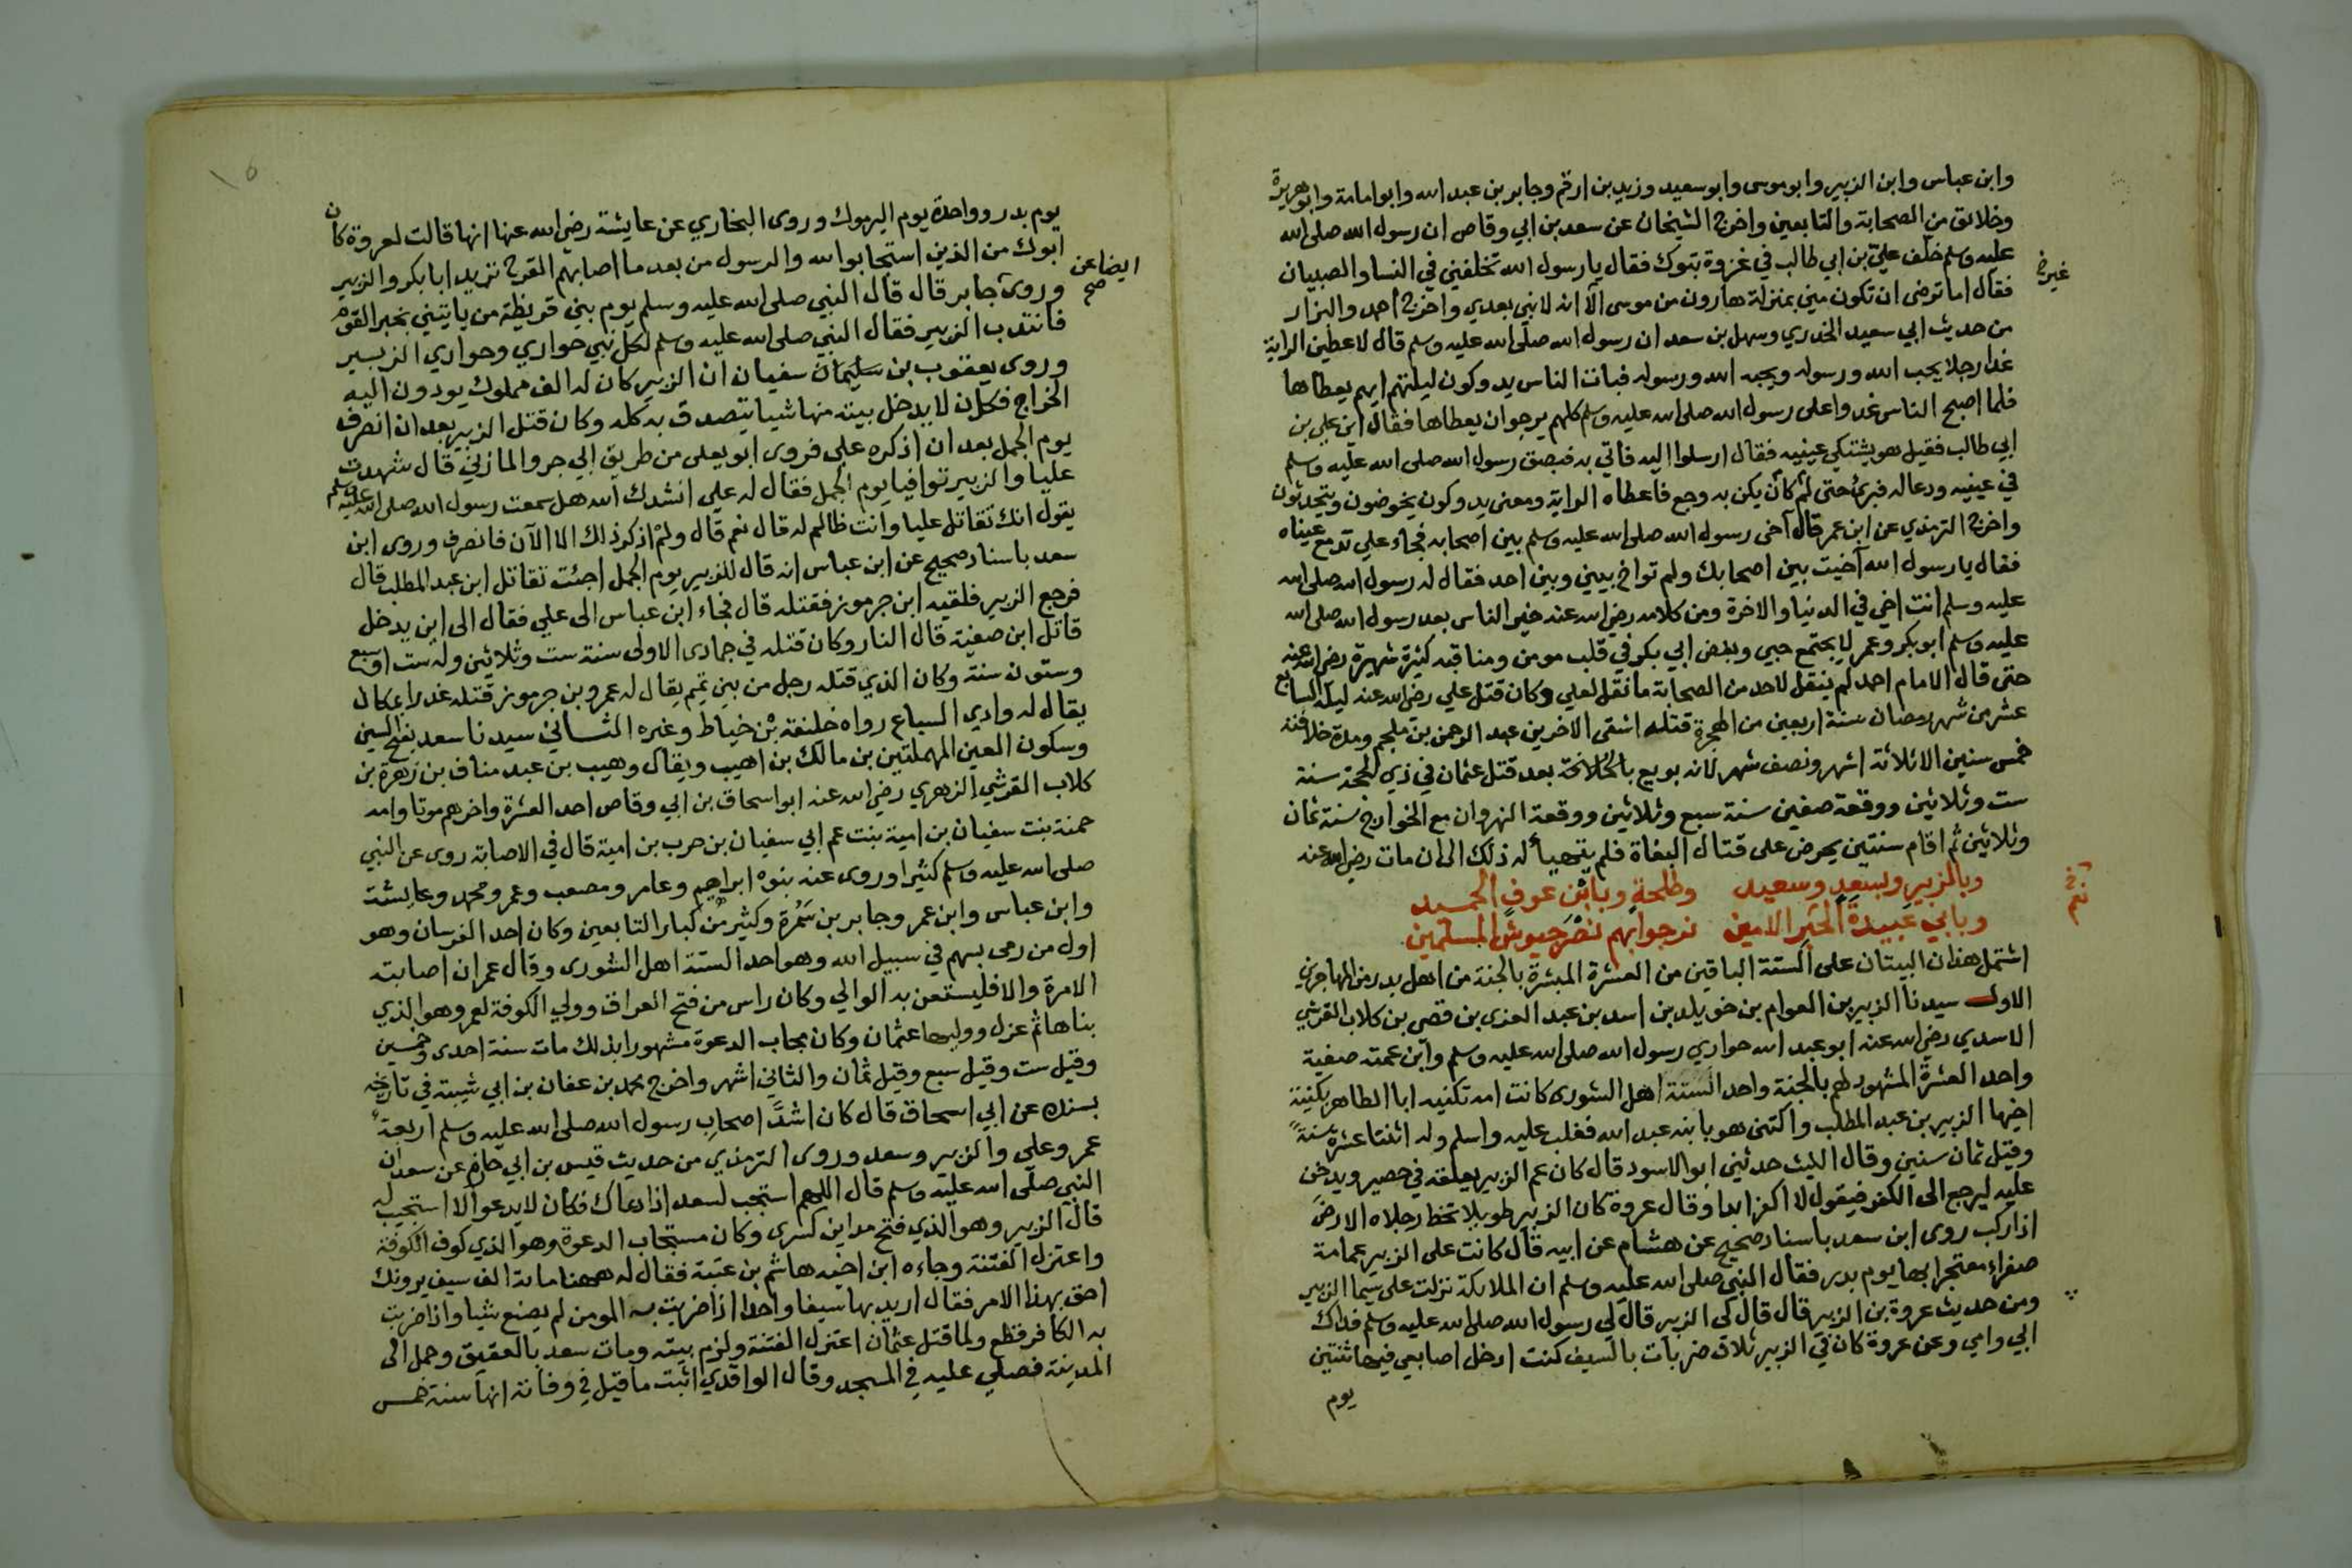 وابن عباس وابن الزبير وابو موسى وابو سعيد وزيد بن ارقم وجابر بن عبد الله وابو امامة وابو هريرة
وخلائق من الصحابة والتابعين واخرج الشيخان عن سعد بن ابي وقاص ان رسول الله صلى الله
عليه وسلم خلف علي بن ابي طالب في غزوة تبوك فقال يا رسول الله تخلفني في النسا والصبيان
فقال اما ترضى ان تكون مني بمنزلة هارون من موسى الا انه لا نبي بعدي واخرج احمد والبزار
من حديث ابي سعيد الخدري وسهل بن سعد ان رسول الله صلى الله عليه وسلم قال لاعطين الراية
غدا رجلا يحب الله ورسوله ويحبه الله ورسوله فبات الناس يدوكون ليلتهم ايهم يعطاها
فلما اصبح الناس غدوا على رسول الله صلى الله عليه وسلم كلهم يرجو ان يعطاها فقال اين علي بن
ابي طالب فقيل هو يشتكي عينيه فقال ارسلوا اليه فاتي به فبصق رسول الله صلى الله عليه وسلم
في عينيه ودعا له فبرئ حتى لم كان يكن به وجع فاعطاه الراية ومعنى يدوكون يخوضون ويتحدثون
واخرج الترمذي عن ابن عمر قال آخى رسول الله صلى الله عليه وسلم بين اصحابه فجاء علي تدمع عيناه
فقال يا رسول الله آخيت بين اصحابك ولم تواخ بيني وبين احد فقال له رسول الله صلى الله
عليه وسلم انت اخي في الدنيا والاخرة ومن كلامه رضي الله عنه خير الناس بعد رسول الله صلى الله
عليه وسلم ابو بكر وعمر لا يجتمع حبي وبغض ابي بكر في قلب مومن ومناقبه كثيرة شهيرة رضي الله عنه
حتى قال الامام احمد لم ينقل لاحد من الصحابة ما نقل لعلي وكان قتل علي رضي الله عنه ليلة السابع
عشر من شهر رمضان سنة اربعين من الهجرة قتله اشقى الاخرين عبد الرحمن بن ملجم ومدة خلافته
خمس سنين الا ثلاثة اشهر ونصف شهر لانه بويع بالخلافة بعد قتل عثمان في ذي الحجة سنة
ست وثلاثين ووقعة صفين سنة سبع وثلاثين ووقعة النهروان مع الخوارج سنة ثمان
وثلاثين ثم اقام سنتين يحرض على قتال البغاة فلم يتهيأ له ذلك الى ان مات رضي الله عنه
وبالزبير وبسعد وسعيد وطلحة وبابن عوف الحميد
وبابي عبيدة الحبر الامين نرجوا بهم نصر جيوش المسلمين
اشتمل هذان البيتان على الستة الباقين من العشرة المبشرة بالجنة من اهل بدر من المهاجرين
الاول سيدنا الزبير بن العوام بن خويلد بن اسد بن عبد العزى بن قصي بن كلاب القرشي
الاسدي رضي الله عنه ابو عبد الله حواري رسول الله صلى الله عليه وسلم وابن عمته صفية
واحد العشرة المشهود لهم بالجنة واحد الستة اهل الشورى كانت امه تكنيه ابا الطاهر بكنية
اخيها الزبير بن عبد المطلب واكتنى هو بابنه عبد الله فغلب عليه واسلم وله اثنتا عشرة سنة
وقيل ثمان سنين وقال الليث حدثني ابو الاسود قال كان عم الزبير يعلقه في حصير ويدخن
عليه ليرجع الى الكفر فيقول لا اكفر ابدا وقال عروة كان الزبير طويلا تخط رجلاه الارض
اذا ركب روى ابن سعد باسناد صحيح عن هشام عن ابيه قال كانت على الزبير عمامة
صفراء معتجرا بها يوم بدر فقال النبي صلى الله عليه وسلم ان الملائكة نزلت على سيما الزبير
ومن حديث عروة بن الزبير قال قال لي الزبير قال لي رسول الله صلى الله عليه وسلم فداك
ابي وامي وعن عروة كان في الزبير ثلاث ضربات بالسيف كنت ادخل اصابعي فيها ثنتين
يوم
يوم بدر وواحدة يوم اليرموك وروى البخاري عن عايشة رضي الله عنها انها قالت لعروة كان
ابوك من الذين استجابوا لله والرسول من بعد ما اصابهم القرح تريد ابا بكر والزبير
ايضا عن
صح
وروى جابر قال قال النبي صلى الله عليه وسلم يوم بني قريظة من ياتيني بخبر القوم
فانتدب الزبير فقال النبي صلى الله عليه وسلم لكل نبي حواري وحواري الزبير
وروى يعقوب بن سليمان سفيان ان الزبير كان له الف مملوك يودون اليه
الخراج فكان لا يدخل بيته منها شيا يتصدق به كله وكان قتل الزبير بعد ان انصرف
يوم الجمل بعد ان اذكره علي فروى ابو يعلى من طريق ابي جرو المازني قال شهدت
عليا والزبير توافيا يوم الجمل فقال له علي انشدك الله هل سمعت رسول الله صلى الله عليه وسلم
يقول انك تقاتل عليا وانت ظالم له قال نعم قال ولم اذكر ذلك الا الآن فانصرف وروى ابن
سعد باسناد صحيح عن ابن عباس انه قال للزبير يوم الجمل اجئت تقاتل ابن عبد المطلب قال
فرجع الزبير فلقيه ابن جرموز فقتله قال فجاء ابن عباس الى علي فقال الى اين يدخل
قاتل ابن صفية قال النار وكان قتله في جمادى الاولى سنة ست وثلاثين وله ست او سبع
وستون سنة وكان الذي قتله رجل من بني تميم يقال له عمرو بن جرموز قتله غدرا بمكان
يقال له وادي السباع رواه خليفة بن خياط وغيره الثاني سيدنا سعد بفتح السين
وسكون العين المهملتين بن مالك بن اهيب ويقال وهيب بن عبد مناف بن زهرة بن
كلاب القرشي الزهري رضي الله عنه ابو اسحاق بن ابي وقاص احد العشرة واخرهم موتا وامه
حمنة بنت سفيان بن امية بنت عم ابي سفيان بن حرب بن امية قال في الاصابة روى عن النبي
صلى الله عليه وسلم كثيرا وروى عنه بنوه ابراهيم وعامر ومصعب وعمر ومحمد وعايشة
وابن عباس وابن عمر وجابر بن سمرة وكثير من كبار التابعين وكان احد الفرسان وهو
اول من رمى بسهم في سبيل الله وهو احد الستة اهل الشورى وقال عمر ان اصابته
الامرة والا فليستعن به الوالي وكان راس من فتح العراق وولي الكوفة لعمر وهو الذي
بناها ثم عزل ووليها عثمان وكان مجاب الدعوة مشهورا بذلك مات سنة احدى وخمسين
وقيل ست وقيل سبع وقيل ثمان والثاني اشهر واخرج محمد بن عفان بن ابي شيبة في تاريخه
بسنده عن ابي اسحاق قال كان اشد اصحاب رسول الله صلى الله عليه وسلم اربعة
عمر وعلي والزبير وسعد وروى الترمذي من حديث قيس بن ابي حازم عن سعد ان
النبي صلى الله عليه وسلم قال اللهم استجب لسعد اذا دعاك فكان لا يدعو الا استجيب له
قال الزبير وهو الذي فتح مداين كسرى وكان مستجاب الدعوة وهو الذي كوف الكوفة
واعتزل الفتنة وجاءه ابن اخيه هاشم بن عتبة فقال له ههنا ماية الف سيف يرونك
احق بهذا الامر فقال اريد بها سيفا واحدا اذا ضربت به المومن لم يصنع شيا واذا ضربت
به الكافر قطع ولما قتل عثمان اعتزل الفتنة ولزم بيته ومات سعد بالعقيق وحمل الى
المدينة فصلي عليه في المسجد وقال الواقدي اثبت ما قيل في وفاته انها سنة خمس